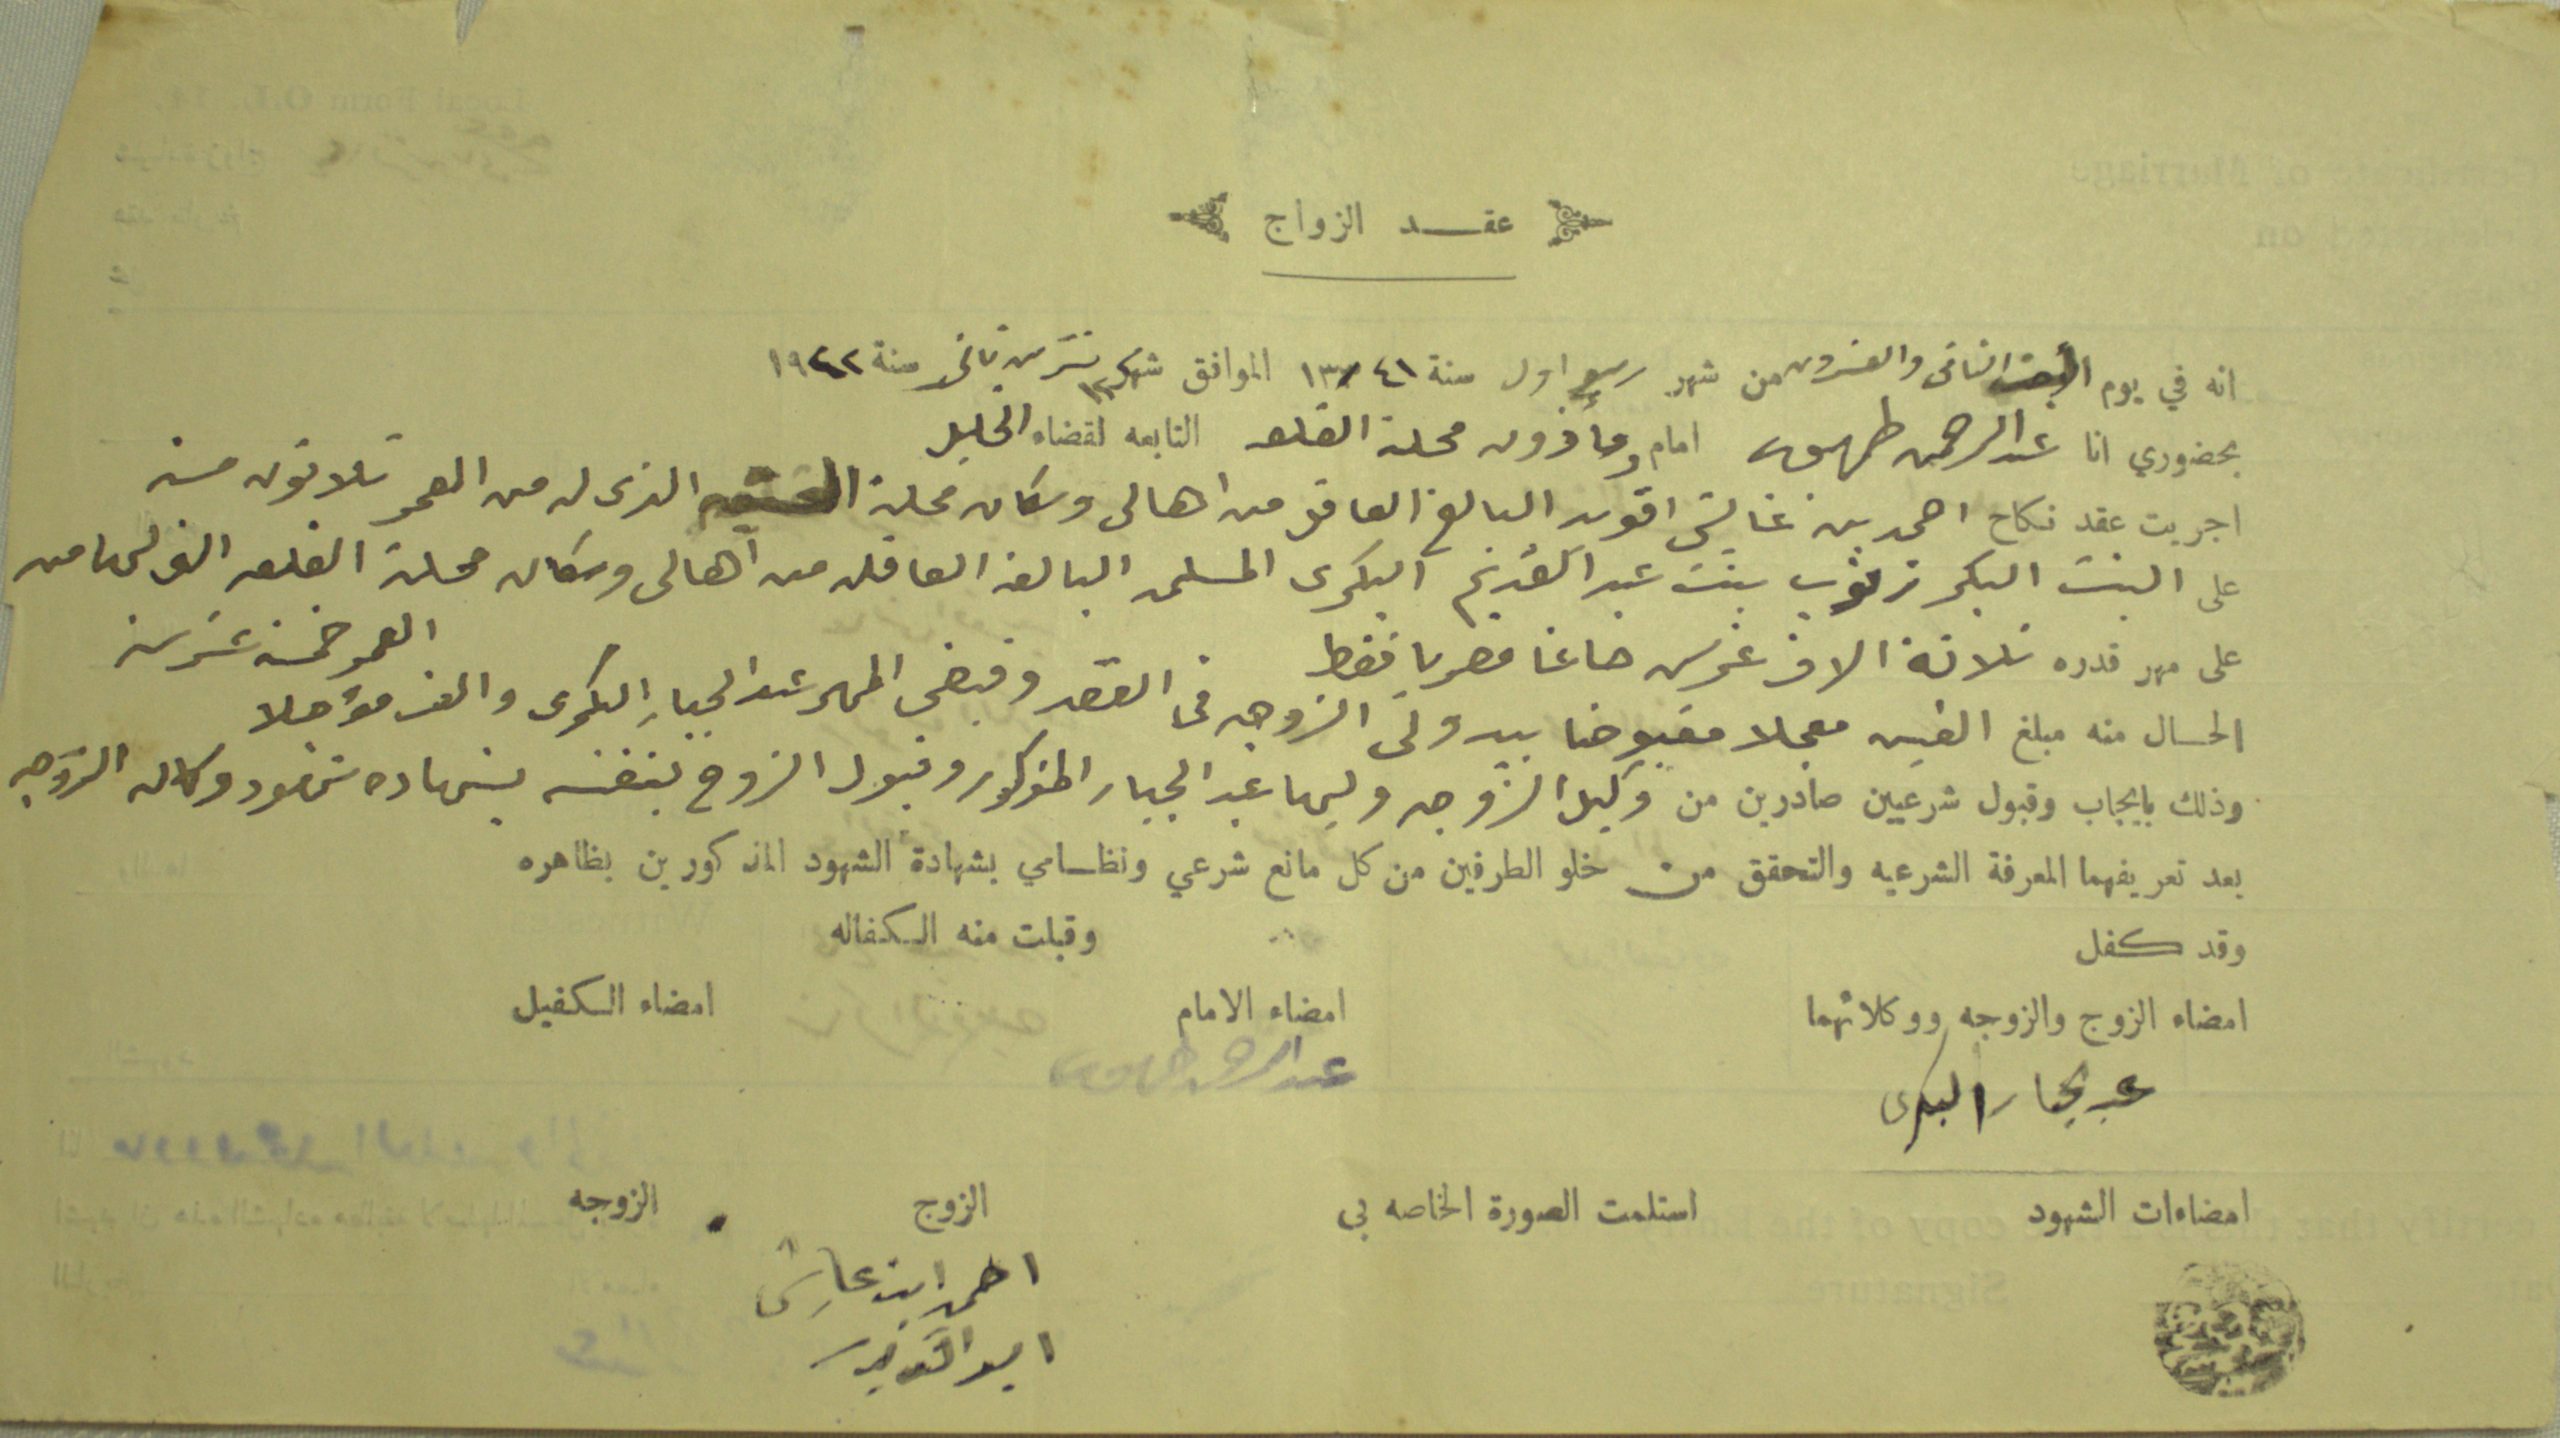 عقد الزواج
انه في يوم الثانى والعشرون من شهر ربيع اول سنة ١٣٤١ الموافق شهر ١٢ تشرين ثانى سنة ١٩٢٢
بحضوري انا عبد الرحمن طهبوب امام ومأذون محلة القلعه التابعه لقضاء الخليل
اجريت عقد نكاح احمد بن غايش البالغ العاقل من اهالى وسكان محلة الذى له من العمر ثلاثون سنه
على البنت البكر زينب بنت عبد البكرى المسلمه البالغه العاقله من اهالى وسكان محلة القلعه التى لها من
العمر خمسة عشر سنه
على مهر قدره ثلاثة الاف غرش صاغا مصريا فقط
الحال منه مبلغ الفين معجلا مقبوضا بيد ولى الزوجه فى العقد وقبض المهر عبد الجبار البكرى والف مؤجلا
وذلك بايجاب وقبول شرعيين صادرين من وكيل الزوجه وليها عبد الجبار المذكور وقبول الزوج بنفسه بشهاده شهود وكاله الزوجه
بعد تعريفهما المعرفة الشرعيه والتحقق من خلو الطرفين من كل مانع شرعي ونظامي بشهادة الشهود المذكورين بظاهره
وقد كفل وقبلت منه الكفاله
امضاء الزوج والزوجه ووكلائهما امضاء الامام امضاء الكفيل
عبد الجبار البكرى عبد الرحمن طهبوب
امضاءات الشهود استلمت الصورة الخاصه بي الزوج الزوجه
احمد ابن عايش
ابو